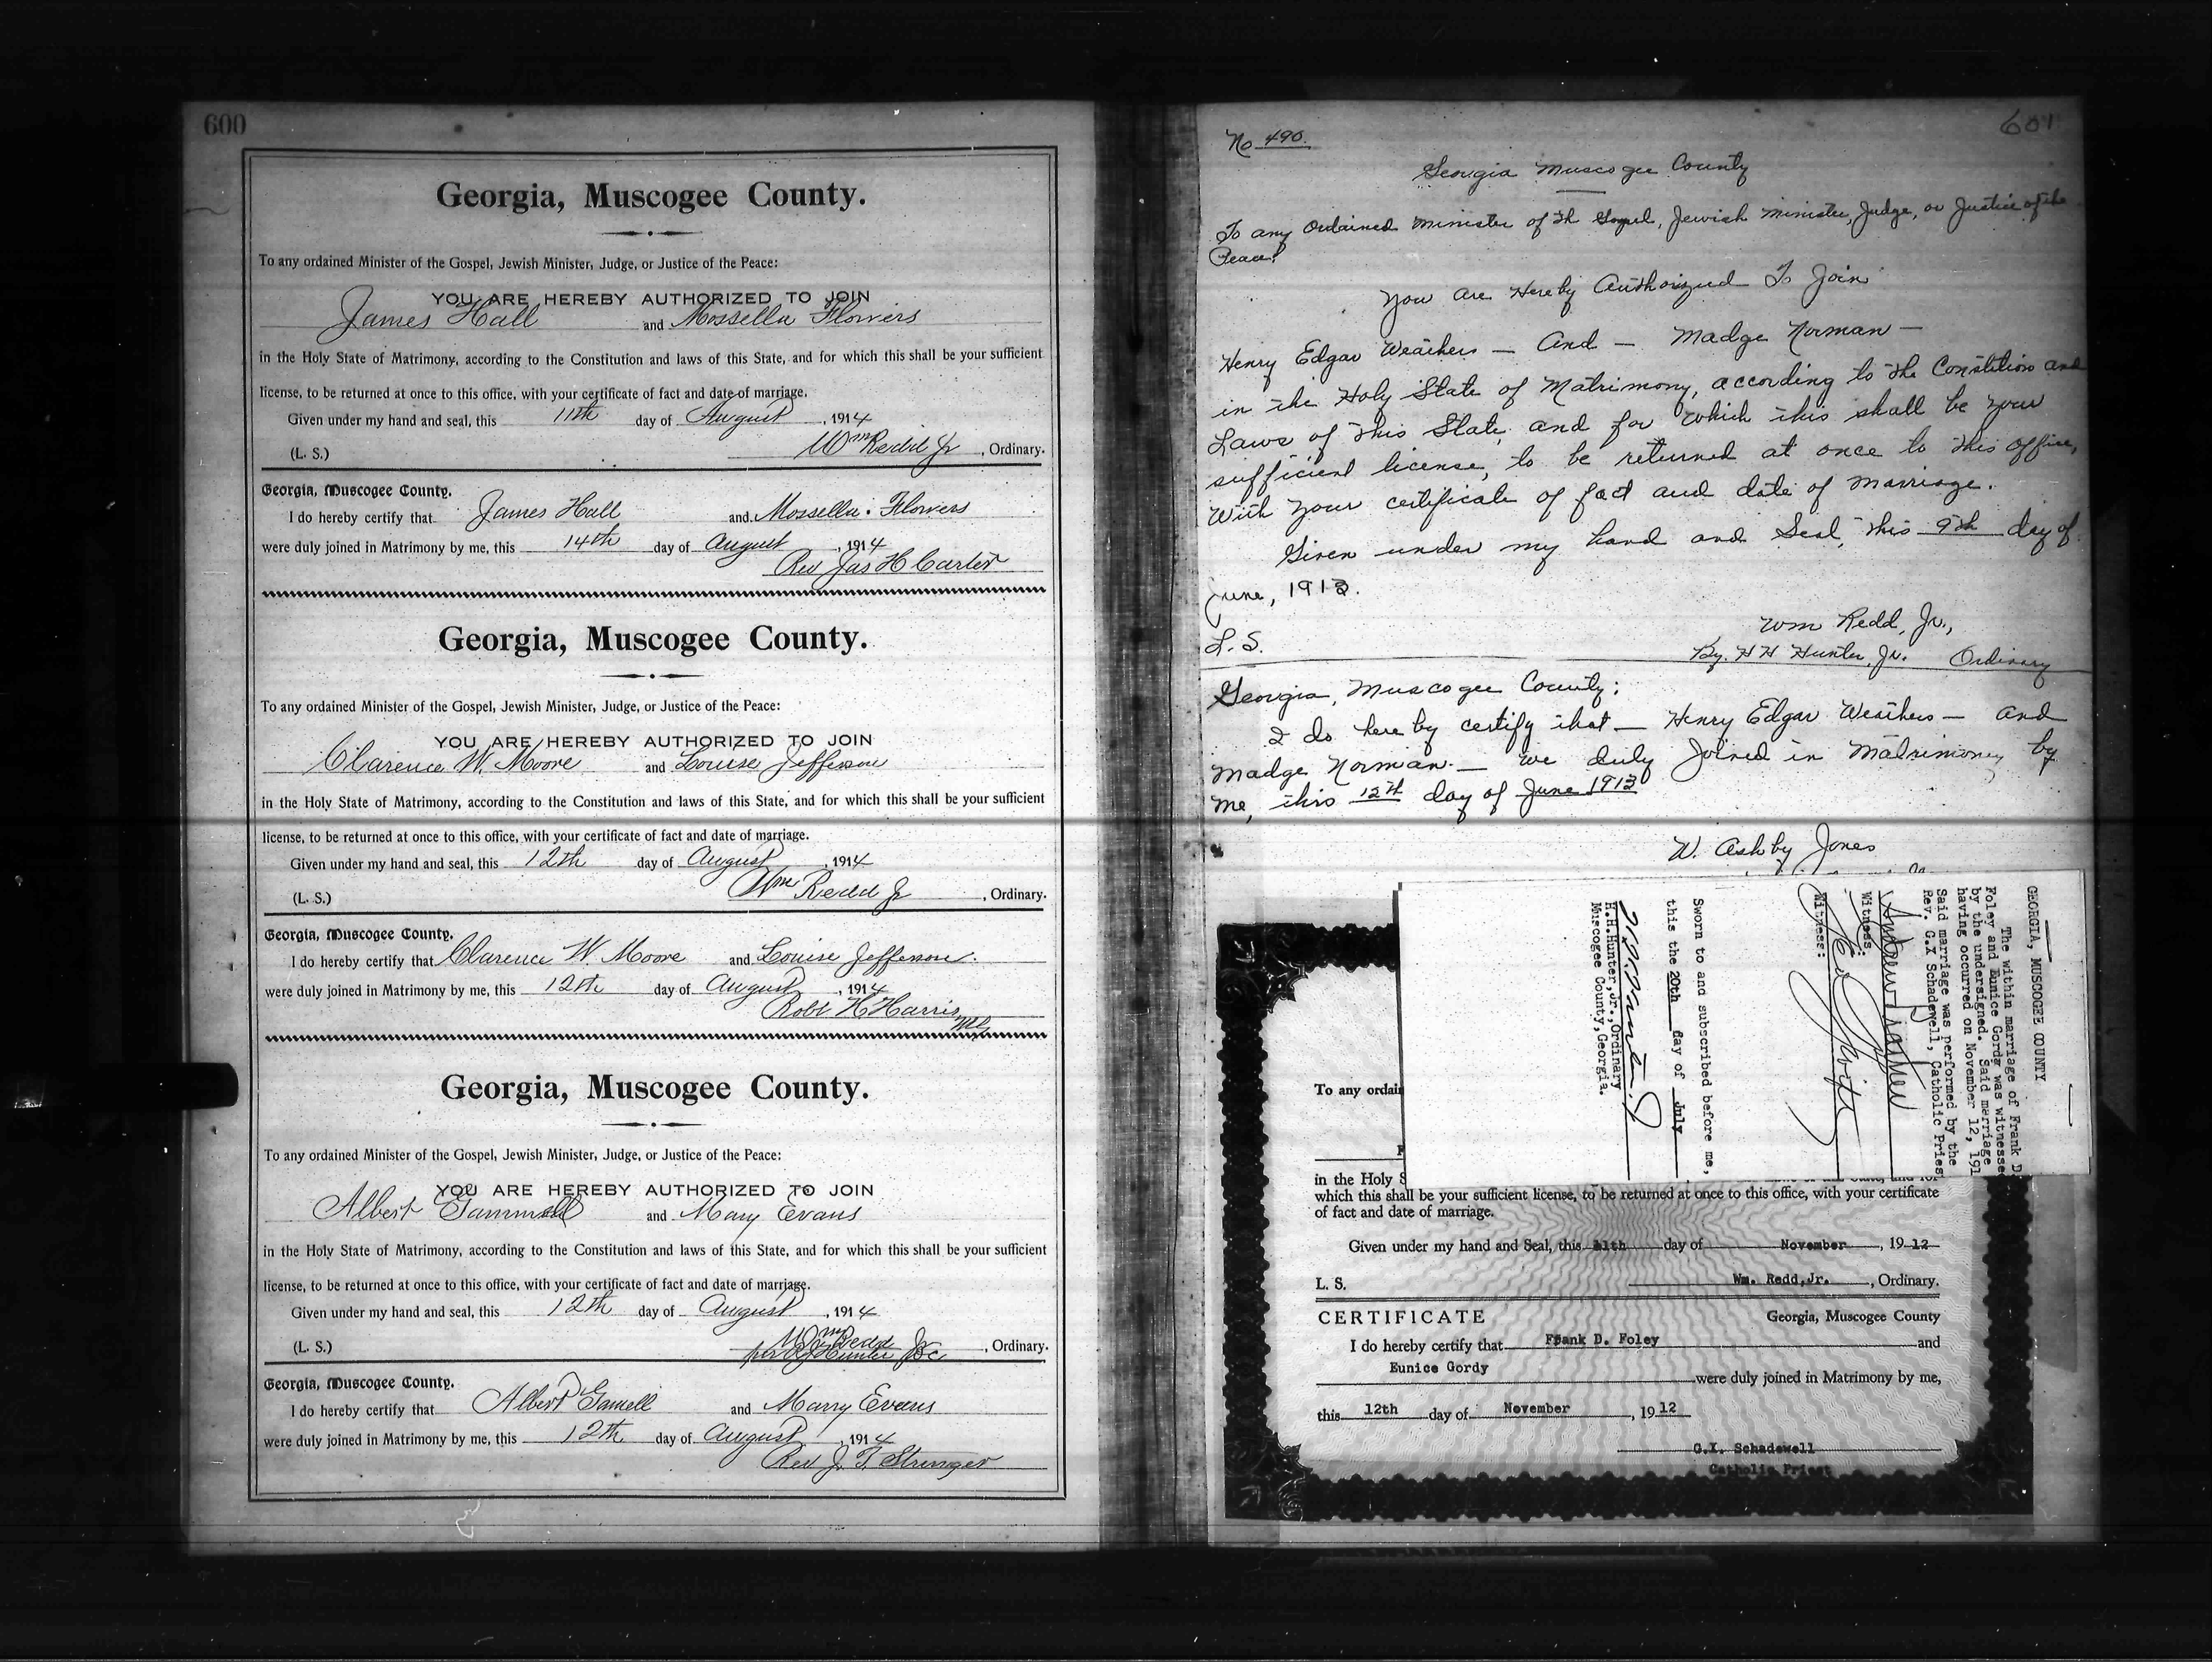 600
Georgia, Muscogee County.
To any ordained Minister of the Gospel, Jewish Minister, Judge, or Justice of the Peace:
YOU ARE HEREBY AUTHORIZED TO JOIN
James Hall and Mossella Flowers
in the Holy State of Matrimony, according to the Constitution and laws of this State, and for which this shall be your sufficient
license, to be returned at once to this office, with your certificate of fact and date of marriage.
Given under my hand and seal, this 11th day of August, 1914
(L. S.) Wm Redd Jr, Ordinary.
Georgia, Muscogee County.
I do hereby certify that James Hall and Mossella Flowers
were duly joined in Matrimony by me, this 14th day of August, 1914
Rev Jas H Carter
Georgia, Muscogee County.
To any ordained Minister of the Gospel, Jewish Minister, Judge, or Justice of the Peace:
YOU ARE HEREBY AUTHORIZED TO JOIN
Clarence W. Moore and Louise Jefferson
in the Holy State of Matrimony, according to the Constitution and laws of this State, and for which this shall be your sufficient
license, to be returned at once to this office, with your certificate of fact and date of marriage.
Given under my hand and seal, this 12th day of August, 1914
(L. S.) Wm Redd Jr, Ordinary.
Georgia, Muscogee County.
I do hereby certify that Clarence W. Moore and Louise Jefferson.
were duly joined in Matrimony by me, this 12th day of August, 1914
Robt H Harris
MG
Georgia, Muscogee County.
To any ordained Minister of the Gospel, Jewish Minister, Judge, or Justice of the Peace:
YOU ARE HEREBY AUTHORIZED TO JOIN
Albert Gammell and Mary Evans
in the Holy State of Matrimony, according to the Constitution and laws of this State, and for which this shall be your sufficient
license, to be returned at once to this office, with your certificate of fact and date of marriage.
Given under my hand and seal, this 12th day of August, 1914
Wm Redd Jr
(L. S.) Hunter, Ordinary.
Georgia, Muscogee County.
I do hereby certify that Albert Gamell and Marry Evans
were duly joined in Matrimony by me, this 12th day of August, 1914
Rev J. T. Stringer
601
No 490.
Georgia Muscogee County
To any Ordained Minister of th Gospel, Jewish Minister, Judge, or Justice of the
Peace!
You are Hereby Authorized To Join
Henry Edgar Weathers — And — Madge Norman —
in the Holy State of Matrimony, according to the Constition and
Laws of this State, and for which this shall be your
sufficient license, to be returned at once to this office,
With your certificate of fact and date of marriage.
Given under my hand and Seal, this 9th day of
June, 1913.
Wm Redd, Jr.,
L. S. By. H H Hunter, Jr. Ordinary
Georgia, Muscogee County;
I do here by certify that — Henry Edgar Weathers — and
Madge Norman. — we duly Joined in Matrimoney by
me, this 12th day of June 1913
W. Ashby Jones
GEORGIA, MUSCOGEE COUNTY
The within marriage of Frank D.
Foley and Eunice Gordy was witnesse
by the undersigned. Said marriage
having occurred on November 12, 191
Said marriage was performed by the
Rev. G.X Schadewell, Catholic Pries
Witness:
Witness:
Sworn to and subscribed before me,
this the 20th day of July
H.H. Hunter, Jr
H.H.Hunter,Jr.,Ordinary
Muscogee County,Georgia.
To any ordai
F
in the Holy S
which this shall be your sufficient license, to be returned at once to this office, with your certificate
of fact and date of marriage.
Given under my hand and Seal, this 11th day of November, 1912
L. S. Wm. Redd,Jr., Ordinary.
CERTIFICATE Georgia, Muscogee County
I do hereby certify that Frank D. Foley and
Eunice Gordy were duly joined in Matrimony by me,
this 12th day of November, 1912
G.X. Schadewell
Catholic Priest